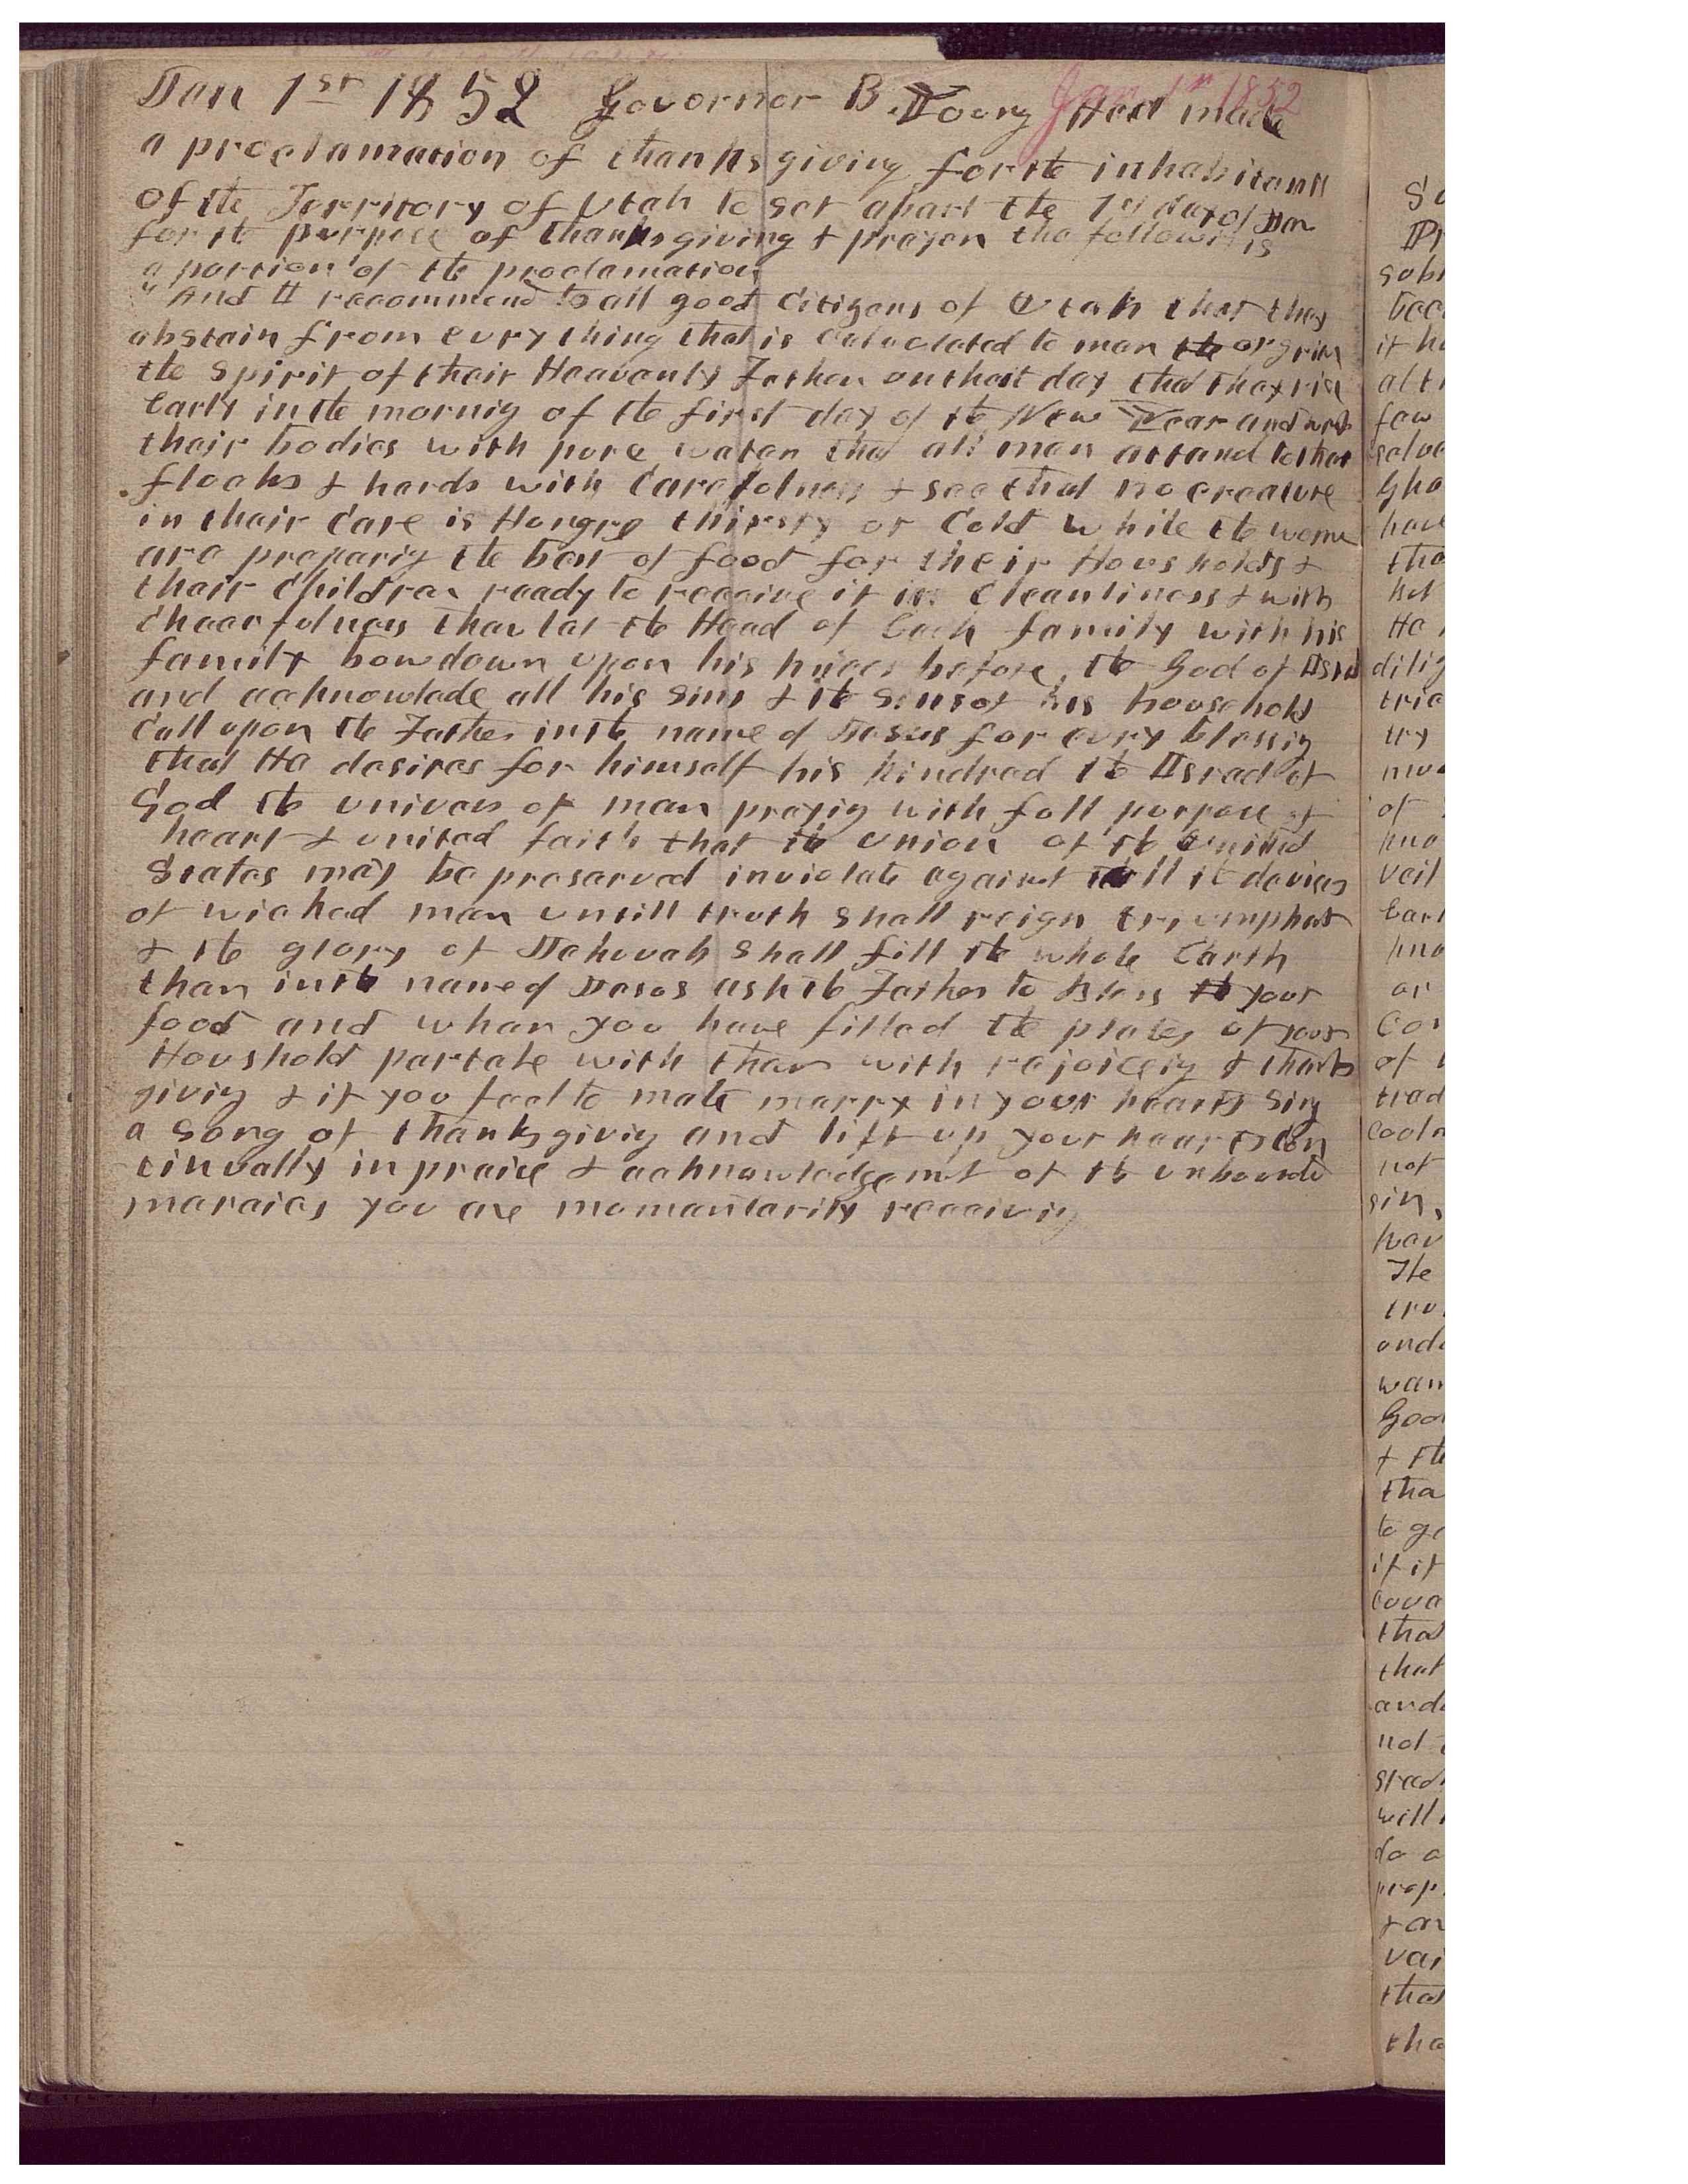 Jan 1st 1852
Jan 1st 1852 Governor B. Young Had made
a proclamation of thanksgiving for the inhabitants
of the Territory of Utah to set apart the 1st day of Jan
for the purpose of thanksgiving & prayer the following is
a portion of the proclamation
"And I recommend to all good Citizens of Utah that they
abstain from evry thing that is Calculated to mar the or griev
the Spirit of their Heavenly Father on that day that they rise
Early in the mornig of the first day of the New Year and wash
their bodies with pure water that all men attend to their
flocks & herds with Carefulness & see that no creature
in their Care is Hungry thirsty or Cold while the women
are preparig the best of food for their Housholds &
their Children ready to receive it in Cleanliness & with
Chearfulness then let the Head of Each family with his
family bow down upon his knees before the God of Israel
and acknowlede all his Sins & the Sins of his household
Call upon the Father in the name of Jesus for evry blessig
that He desires for himself his kindred the Israel of
God the univers of man prayig with full purpose of
heart & united faith that the union of the United
States may be preserved inviolate against all the devices
of wicked men untill truth shall reign triumphant
& the glory of Jehovah Shall fill the whole Earth
then in the name of Jesus ask the Father to Bless the your
food and when you have filled the plates of your
Houshold partake with them with rejoiceig & thanks
givig & if you feel to make merry in your hearts Sing
a Song of thanksgivig and lift up your hearts Con
tinually in praise & acknowledgemnt of the unbounded
mercies you are momentarily receivig